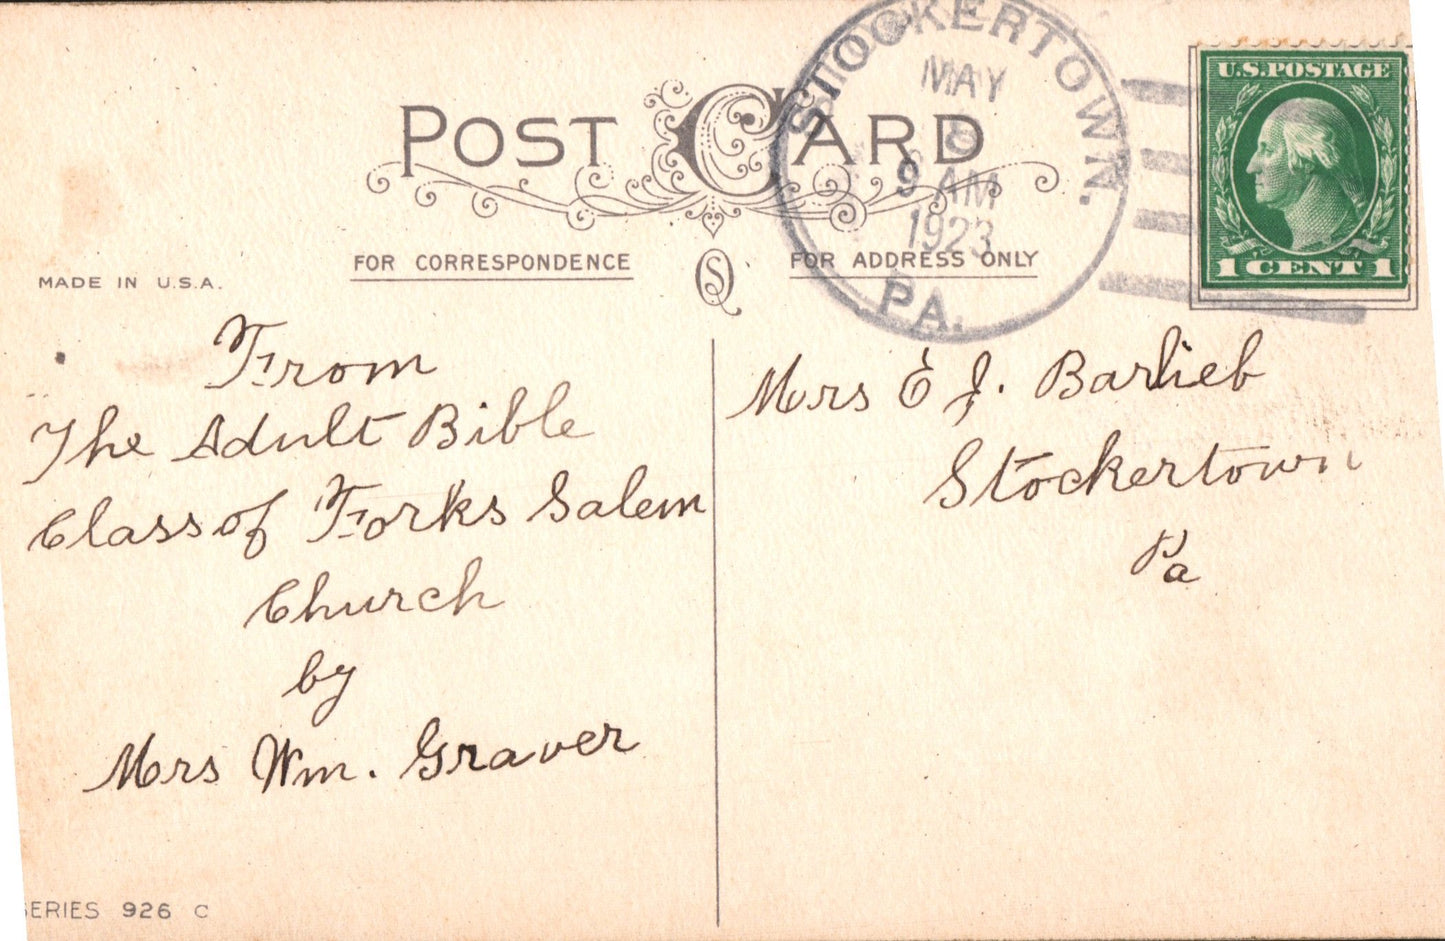 POST CARD
STOCKERTOWN.
MAY
9 AM
1923
PA.
U.S. POSTAGE
1 CENT 1
FOR CORRESPONDENCE
FOR ADDRESS ONLY
MADE IN U.S.A.
From
The Adult Bible
Class of Forks Salem
Church
by
Mrs Wm. Graver
Mrs E J. Barlieb
Stockertown
Pa
SERIES 926 C